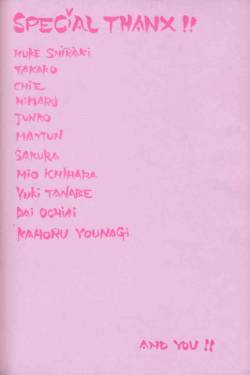 SPECIAL THANX !!
MUKE SHIRAKI
TAKAKO
CHIE
MIHARU
JUNKO
MAYTUN
SAKURA
MIO ICHIHARA
YUKI TANABE
DAI OCHIAI
KAHORU YOUNAGI
AND YOU !!